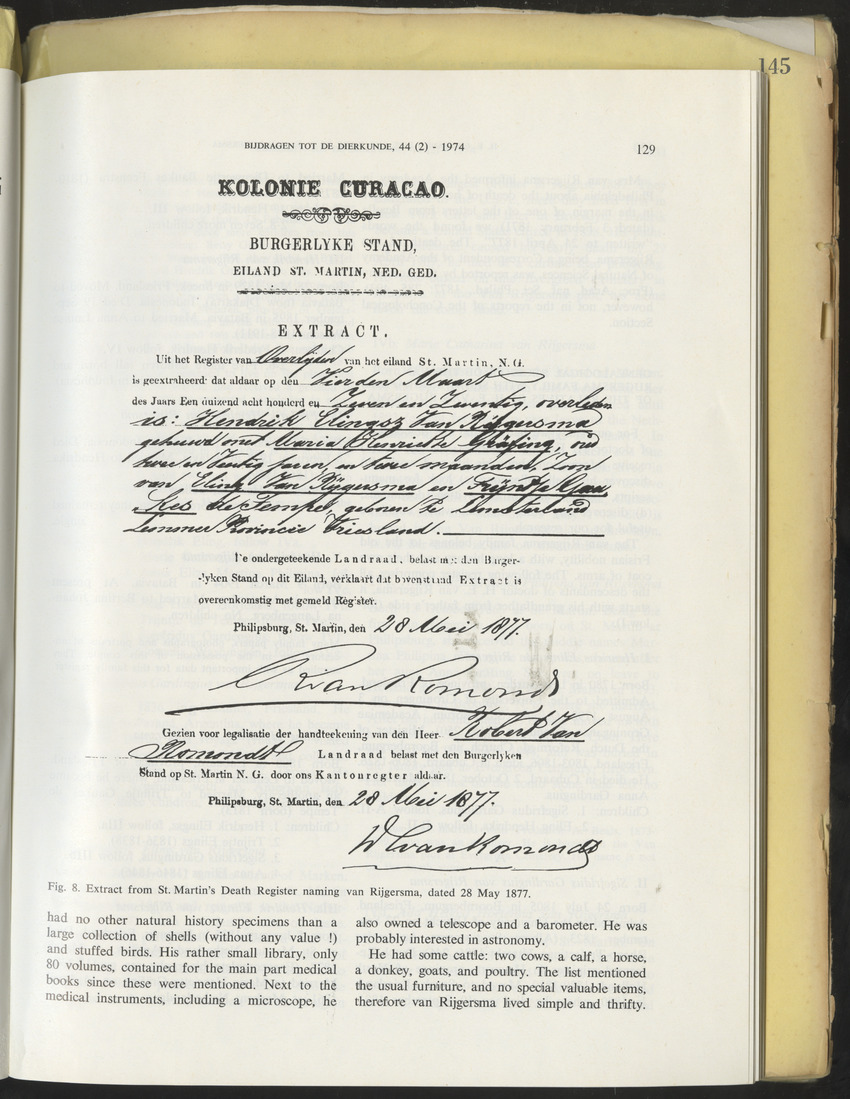 145
BIJDRAGEN TOT DE DIERKUNDE, 44 (2) - 1974 129
KOLONIE CURACAO.
BURGERLYKE STAND,
EILAND ST. MARTIN, NED. GED.
EXTRACT.
Uit het Register van Overlijden van het eiland St. Martin, N. G.
is geextraheerd dat aldaar op den Vierden Maart
des Jaars Een duizend acht honderd en Zeven en Zeventig, overleden
is: Hendrik Elingsz Van Rijgersma
gehuwd met Maria Henriette Gräfing, oud
twee en Veertig jaren, en twee maanden, Zoon
van Eling Van Rijgersma en
de Tempe, geboren te Lemsterland
Lemmer Provincie Vriesland.
De ondergeteekende Landraad, belast met den Burger-
-lyken Stand op dit Eiland, verklaart dat bovenstaand Extract is
overeenkomstig met gemeld Register.
Philipsburg, St. Martin, den 28 Mei 1877.
R van Romondt
Gezien voor legalisatie der handteekening van den Heer Robert Van
Romondt Landraad belast met den Burgerlyken
Stand op St. Martin N. G. door ons Kantonregter aldaar.
Philipsburg, St. Martin, den 28 Mei 1877.
van Romondt
Fig. 8. Extract from St. Martin's Death Register naming van Rijgersma, dated 28 May 1877.
had no other natural history specimens than a
large collection of shells (without any value !)
and stuffed birds. His rather small library, only
80 volumes, contained for the main part medical
books since these were mentioned. Next to the
medical instruments, including a microscope, he
also owned a telescope and a barometer. He was
probably interested in astronomy.
He had some cattle: two cows, a calf, a horse,
a donkey, goats, and poultry. The list mentioned
the usual furniture, and no special valuable items,
therefore van Rijgersma lived simple and thrifty.